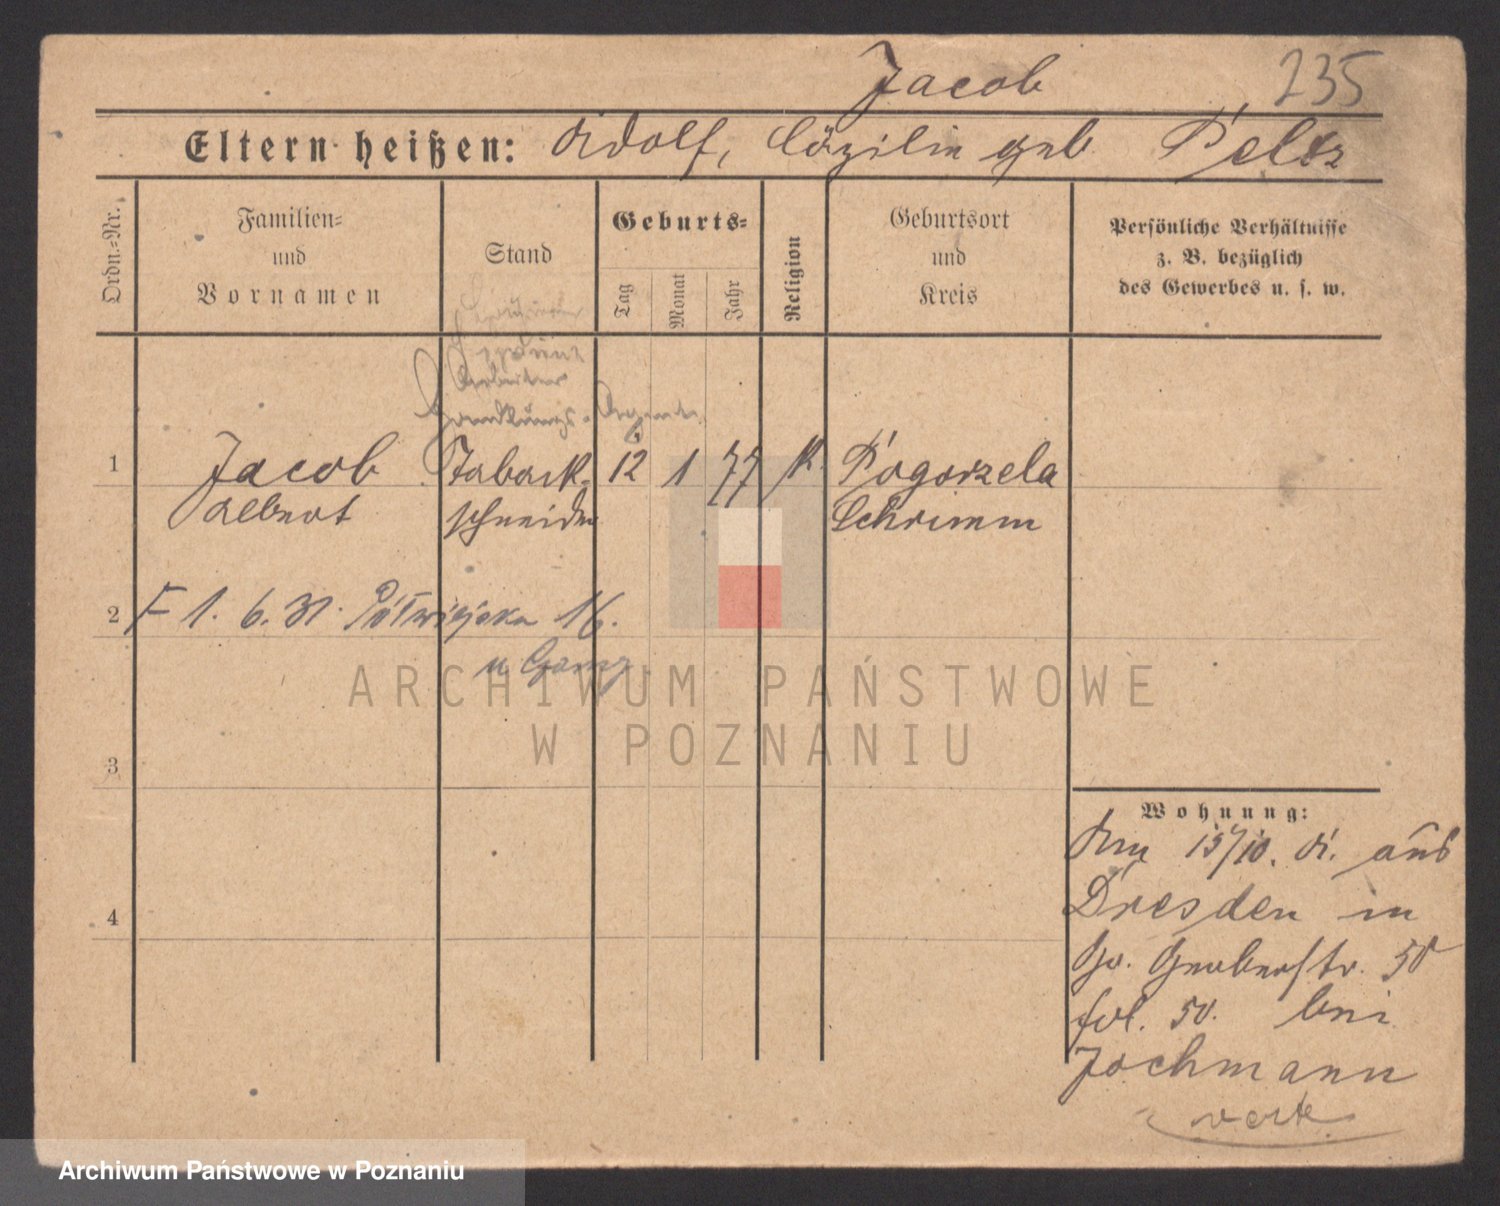 Jacob 235
Eltern heißen: Adolf, Cäzilie geb. Peltz
Ordn.-Nr.
Familien=
und
Vornamen
Stand
Geburts=
Tag
Monat
Jahr
Religion
Geburtsort
und
Kreis
Persönliche Verhältnisse
z. B. bezüglich
des Gewerbes u. s. w.
Arbeiter
Handlungs- Agent
1 Jacob Taback- 12 1 77 k. Pogorzela
Albert schneider Schrimm
2 1. 6. 31. Półwiejska 16.
ARCHIWUM PAŃSTWOWE
W POZNANIU
3
4
Wohnung:
Am 15/10. aus
Dresden in
Gr. Gerberstr. 50
fol. 50. bei
Jochmann
verte
Archiwum Państwowe w Poznaniu